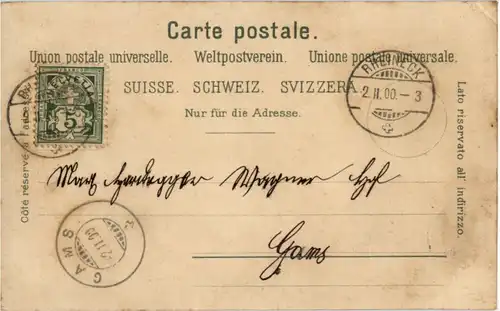 Carte postale.
Union postale universelle. Weltpostverein. Unione postale universale.
SUISSE. SCHWEIZ. SVIZZERA.
Nur für die Adresse.
Côté réservé à l'adresse.
Lato riservato all' indirizzo.
FRANCO HELVETIA
5
RHEINECK
2.II.00.–3
Wagner
Gams
GAMS